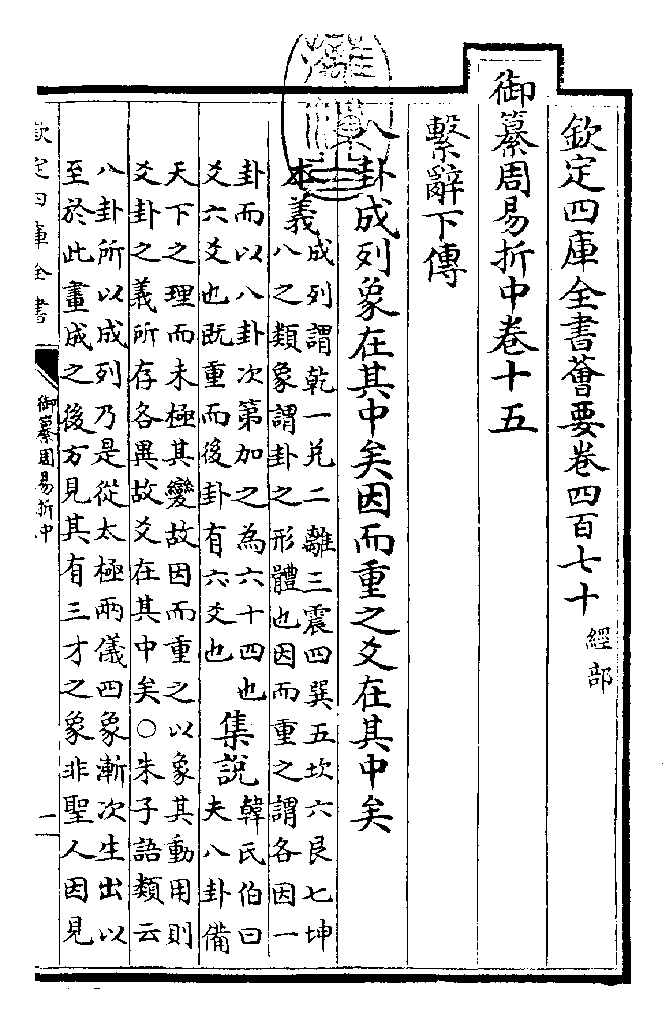 欽定四庫全書薈要卷四百七十 經部
御纂周易折中卷十五
繫辭下傳
八卦成列象在其中矣因而重之爻在其中矣
本義
成列謂乾一兌二離三震四巽五坎六艮七坤
八之類象謂卦之形體也因而重之謂各因一
卦而以八卦次第加之為六十四也
爻六爻也既重而後卦有六爻也
集說
韓氏伯曰
夫八卦備
天下之理而未極其變故因而重之以象其動用則
爻卦之義所存各異故爻在其中矣○朱子語類云
八卦所以成列乃是從太極兩儀四象漸次生出以
至於此畫成之後方見其有三才之象非聖人因見
欽定四庫全書
御纂周易折中
一